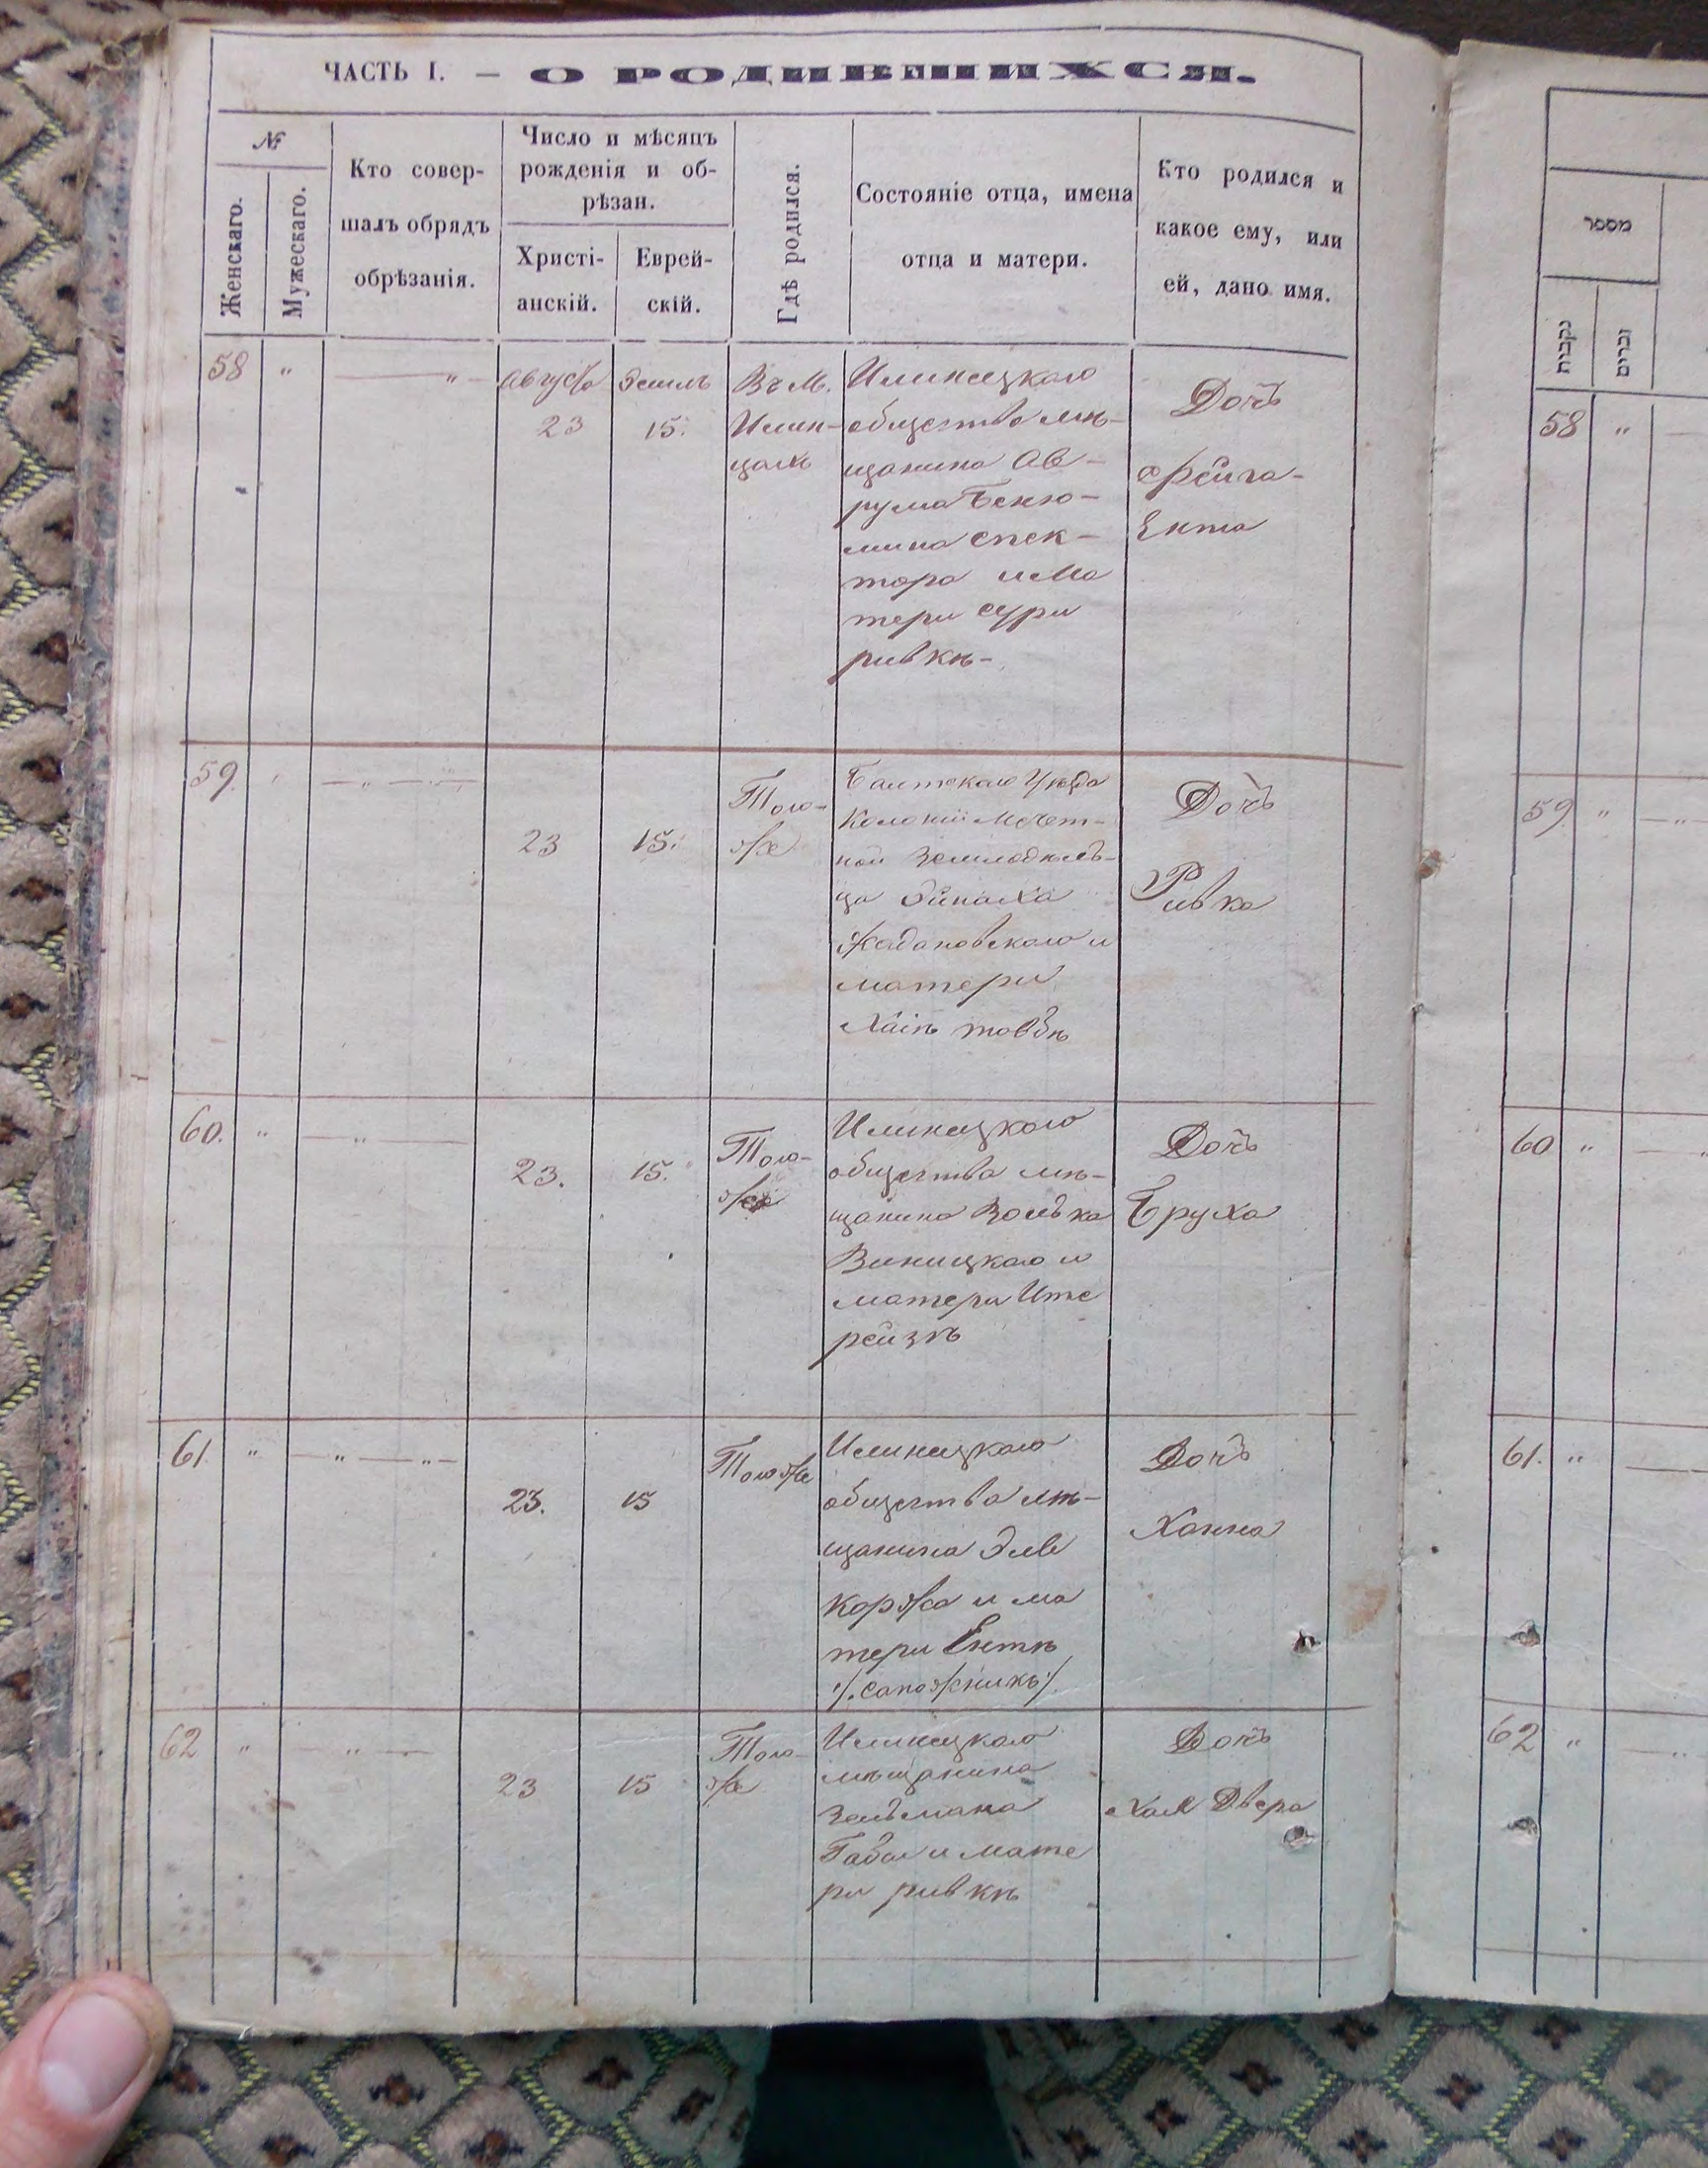 ЧАСТЬ I. — О РОДИВШИХСЯ.
№
Женскаго.
Мужескаго.
Кто совер-
шалъ обрядъ
обрѣзанія.
Число и мѣсяцъ
рожденія и об-
рѣзан.
Христі-
анскій.
Еврей-
скій.
Гдѣ родился.
Состояніе отца, имена
отца и матери.
Кто родился и
какое ему, или
ей, дано имя.
58 " — " —
Августа
23
15.
Въ М.
Илин-
цахъ
Илинецкаго
общества мѣ-
щанина Ав-
рума Беню-
мина Спек-
тора и ма
тери Сури
ривкѣ-
Дочь
Фейга-
Ента
59. " — " — " —
23
15.
Того-
же
Балтскаго Уѣзда
Колоніи Мечет-
ной Земледѣль-
ца
Ждановскаго и
матери
Хаіѣ товбѣ
Дочь
Ривка
60. " — " —
23.
15.
Того-
же
Илинецкаго
общества мѣ-
щанина Волька
Виницкаго и
матери Ите
рейзѣ
Дочь
Бруха
61. " — " — " —
23.
15
Того же
Илинецкаго
общества мѣ-
щанина Эле
Коржа и ма
тери Ентѣ
/. сапожникъ ./
Дочь
Ханна
62 " — " —
23
15
Того-
же
Илинецкаго
мѣщанина
Зельмана
и мате
ри ривкѣ
Дочь
Хая Двера
מספר
נקבות
זכרים
58 " —
59. " — " —
60 " — "
61. " —
62 " — "